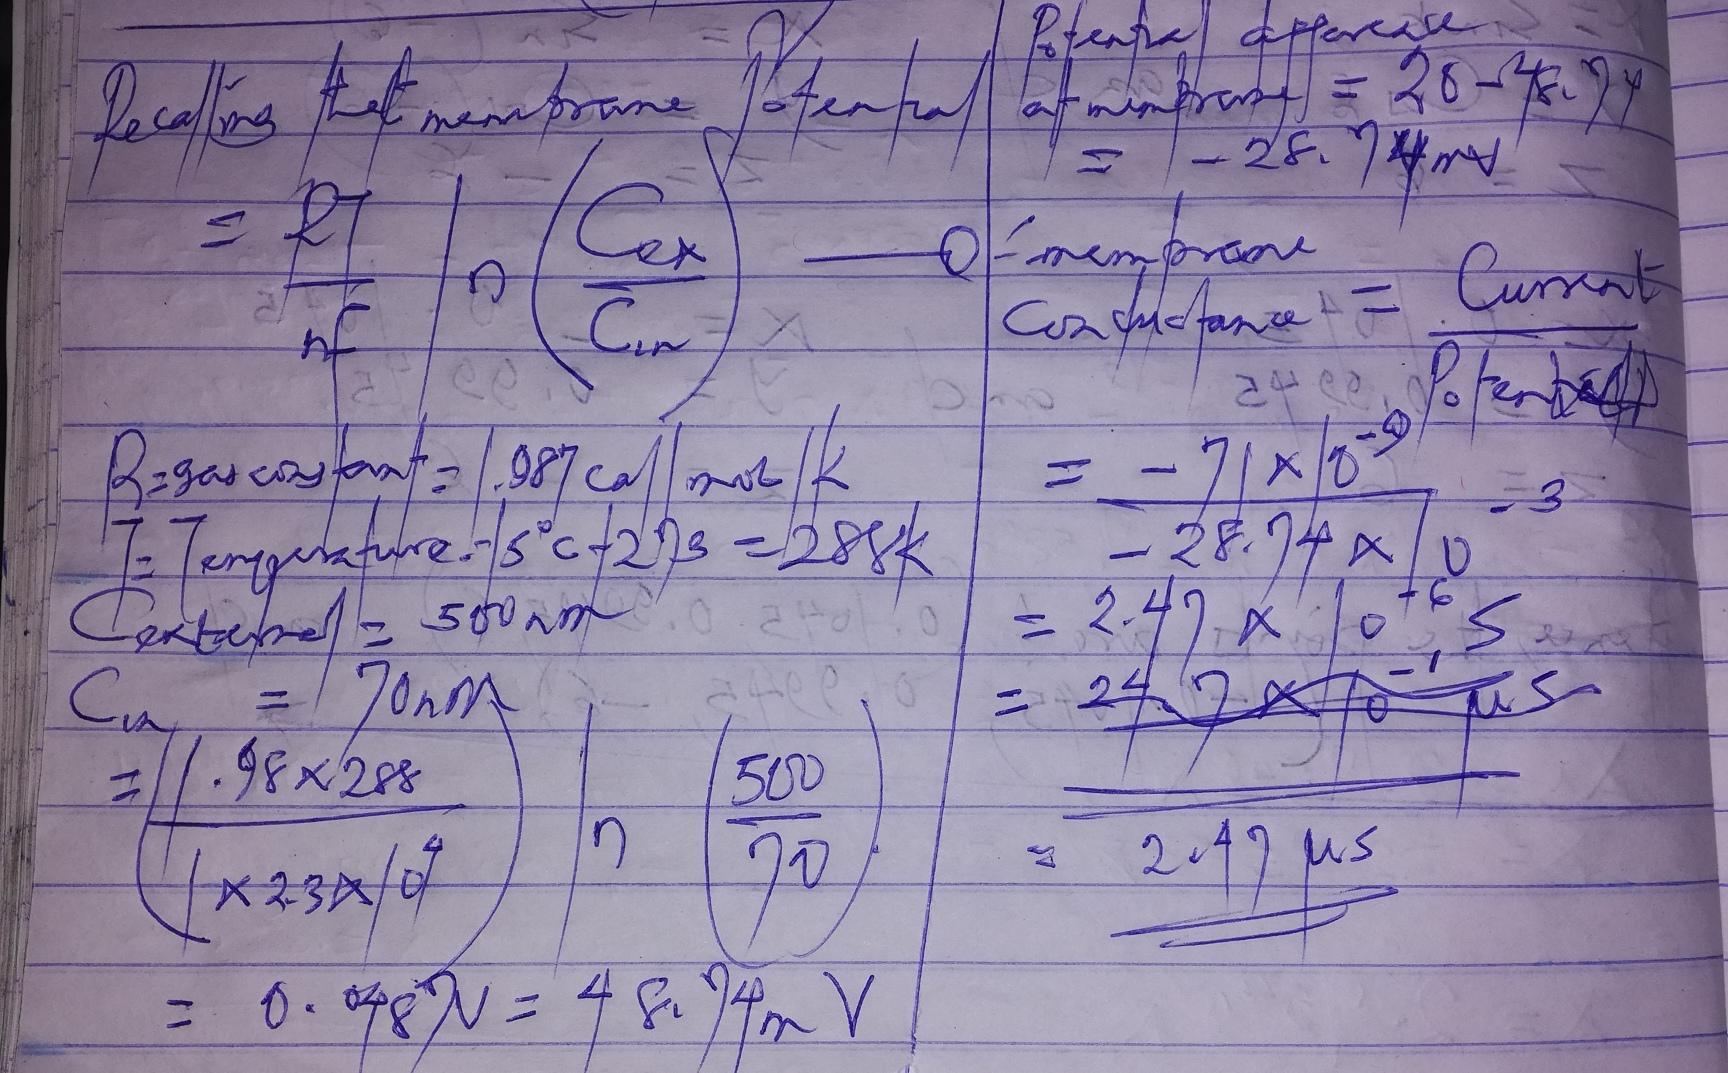 Recalling that membrane Potential
= RT/nF ln (Cex/Cin) —— ①
R = gas constant = 1.987 cal/mol/K
T = Temperature = 15°C + 273 = 288K
Cexternal = 500nm
Cin = 70nM
= (1.98 x 288 / 1 x 2.3 x 10⁴) ln (500/70)
= 0.0487V = 48.74mV
Potential difference
at membrane = 20 - 48.74
= - 28.74mV
membrane
Conductance = Current / Potential
= - 71 x 10⁻⁹ / - 28.74 x 10⁻³
= 2.47 x 10⁻⁶ S
= 24.7 x 10⁻¹ μS
= 2.47 μS